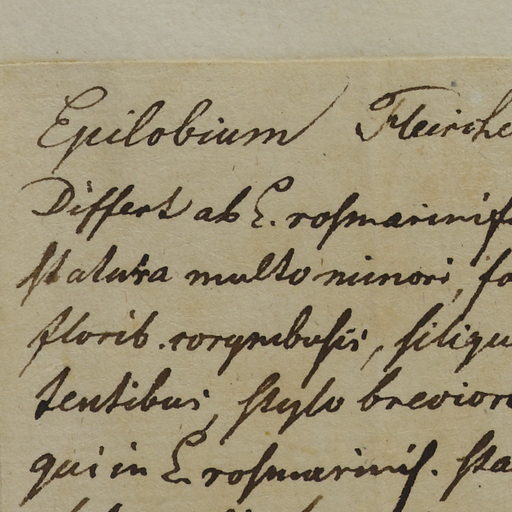 Epilobium Fleische
Differt ab E. rosmarinif
statura multo minori, fo
florib. corymbosis, siliqu
tentibus, stylo brevior
qui in E. rosmarinif. sta